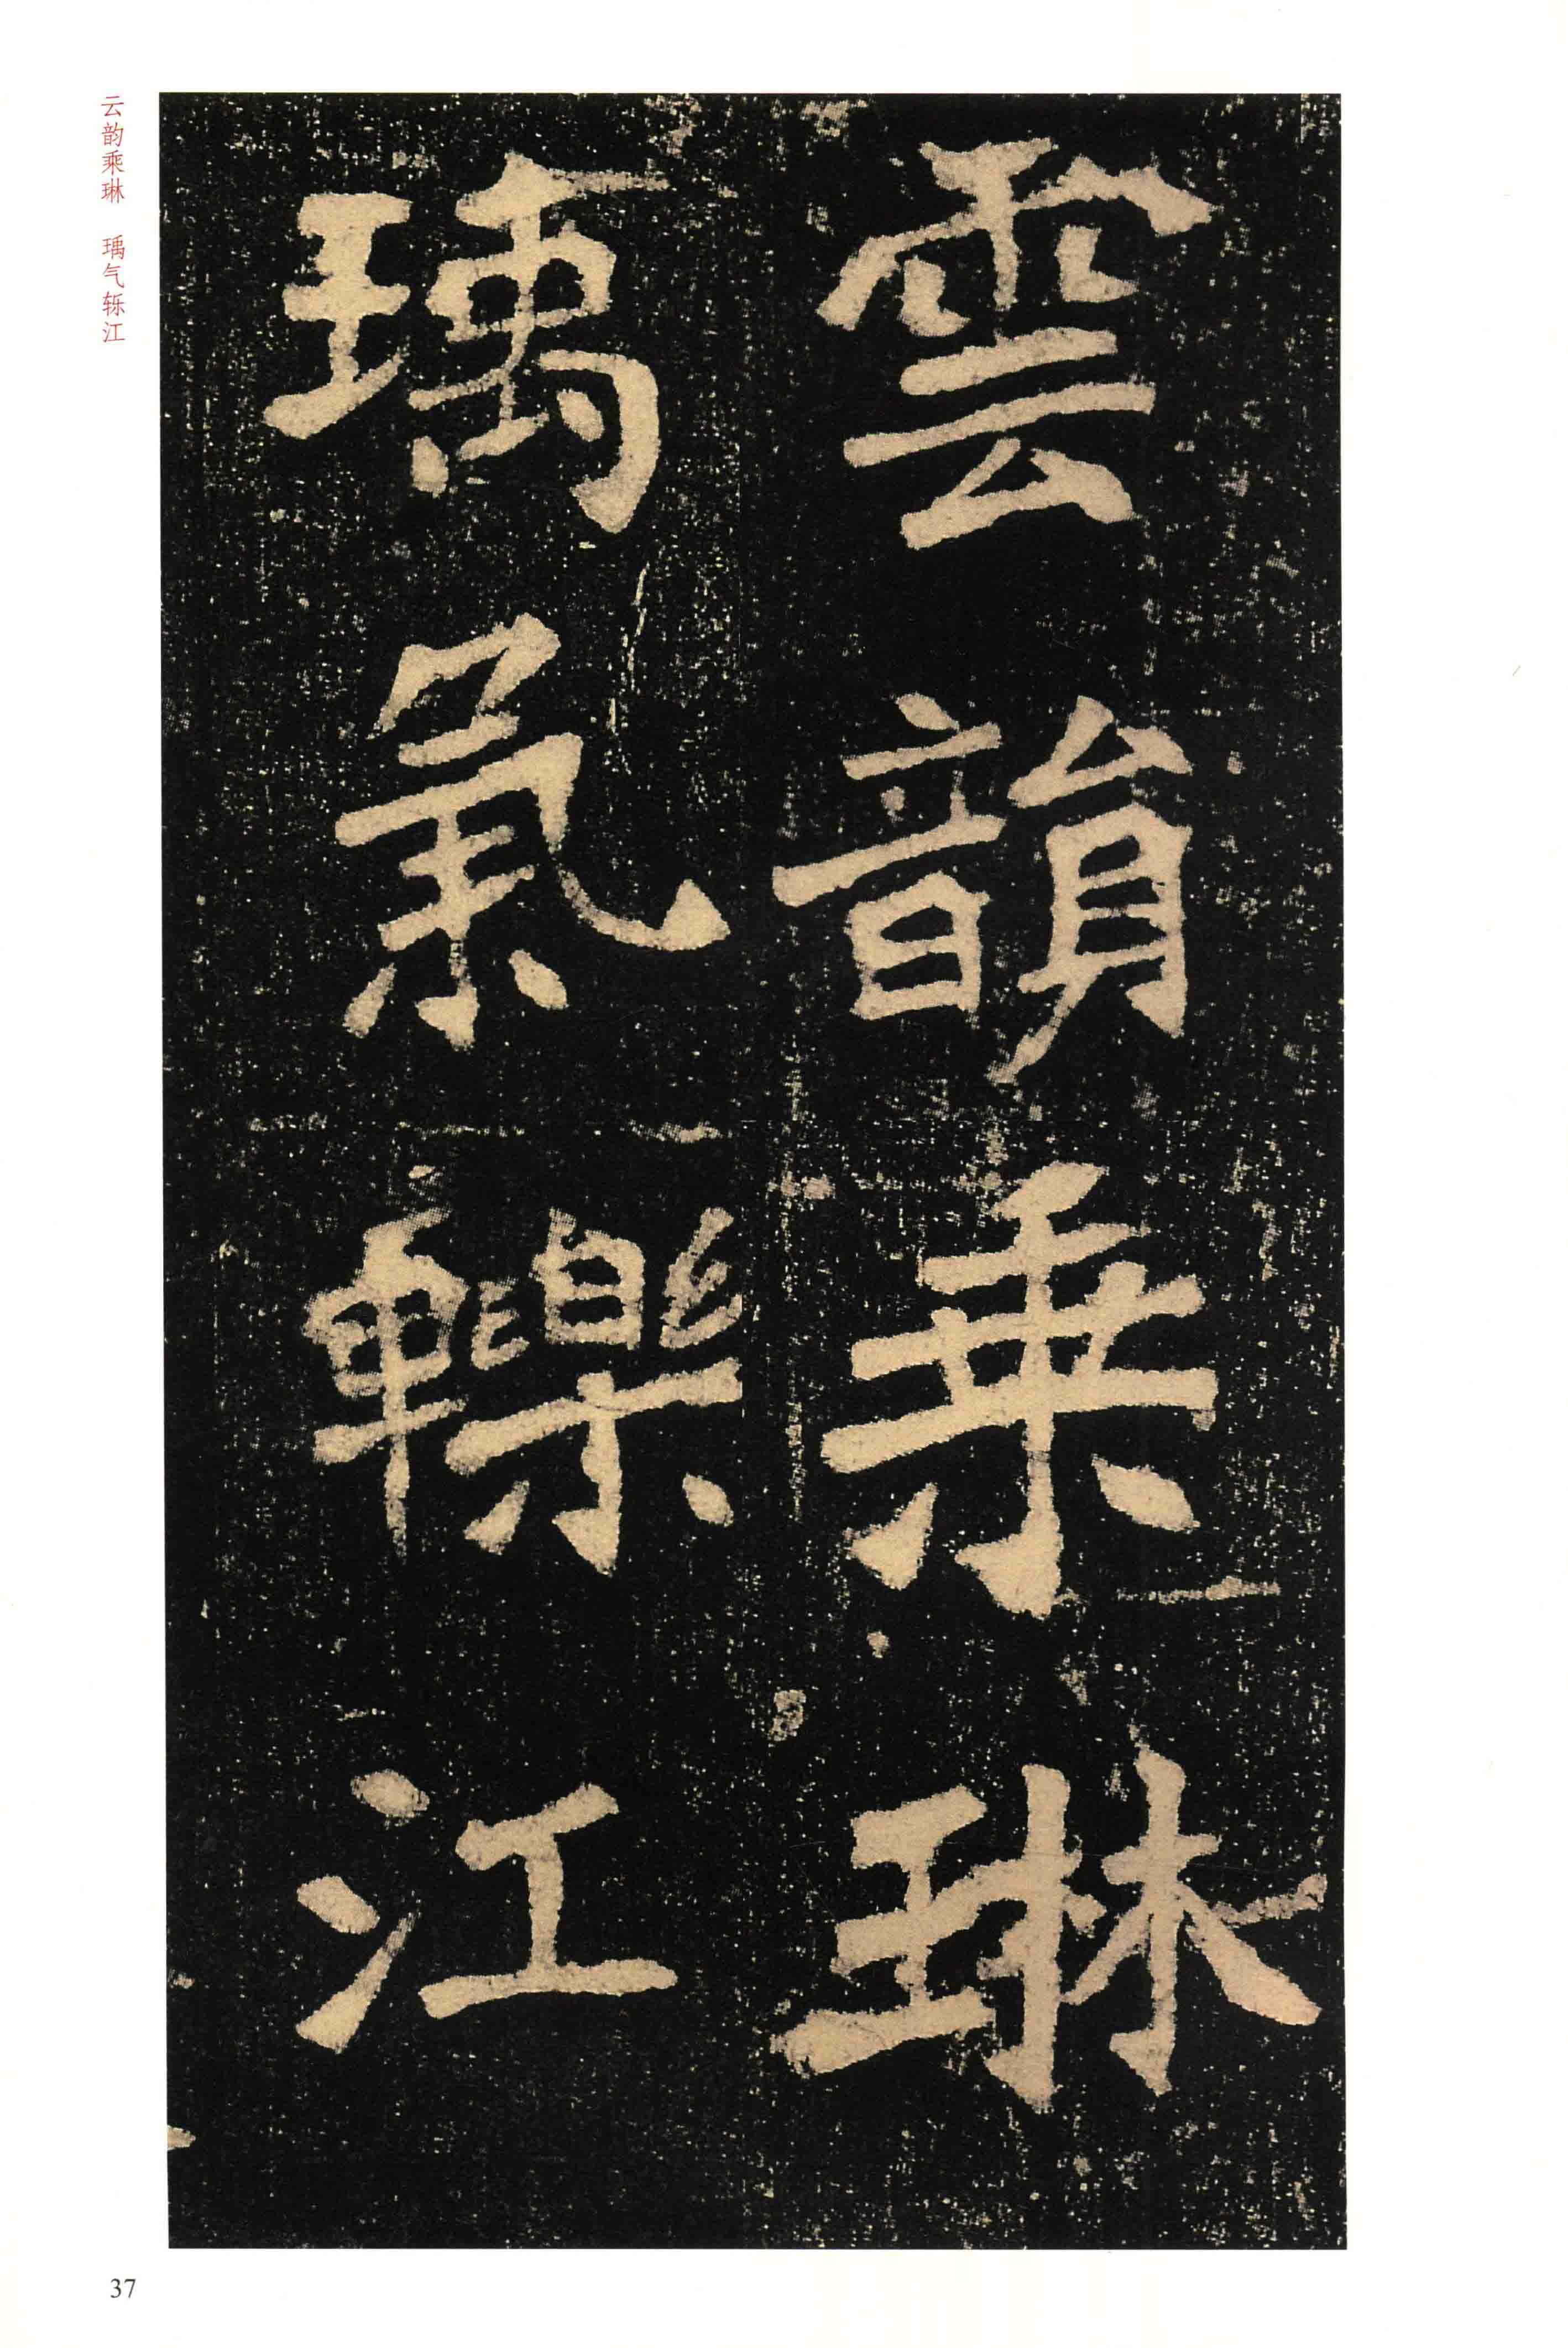 雲韻乗琳
瑀氣轢江
云韵乘琳 瑀气轹江
37